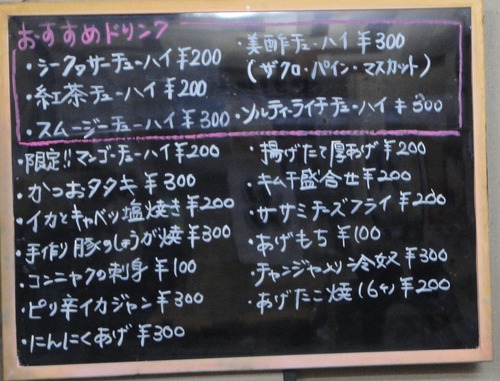 おすすめドリンク
・シークァサーチューハイ ¥200
・紅茶チューハイ ¥200
・スムージーチューハイ ¥300
・美酢チューハイ ¥300
(ザクロ・パイン・マスカット)
・ソルティーライチチューハイ ¥300
・限定!!マンゴーチューハイ ¥200
・かつおタタキ ¥300
・イカとキャベツ塩焼き ¥200
・手作り豚のしょうが焼 ¥300
・コンニャクの刺身 ¥100
・ピリ辛イカジャン ¥300
・にんにくあげ ¥300
・揚げたて厚あげ ¥200
・キムチ盛合せ ¥200
・ササミチーズフライ ¥200
・あげもち ¥100
・チャンジャメリン冷奴 ¥300
・あげたこ焼(6ヶ) ¥200